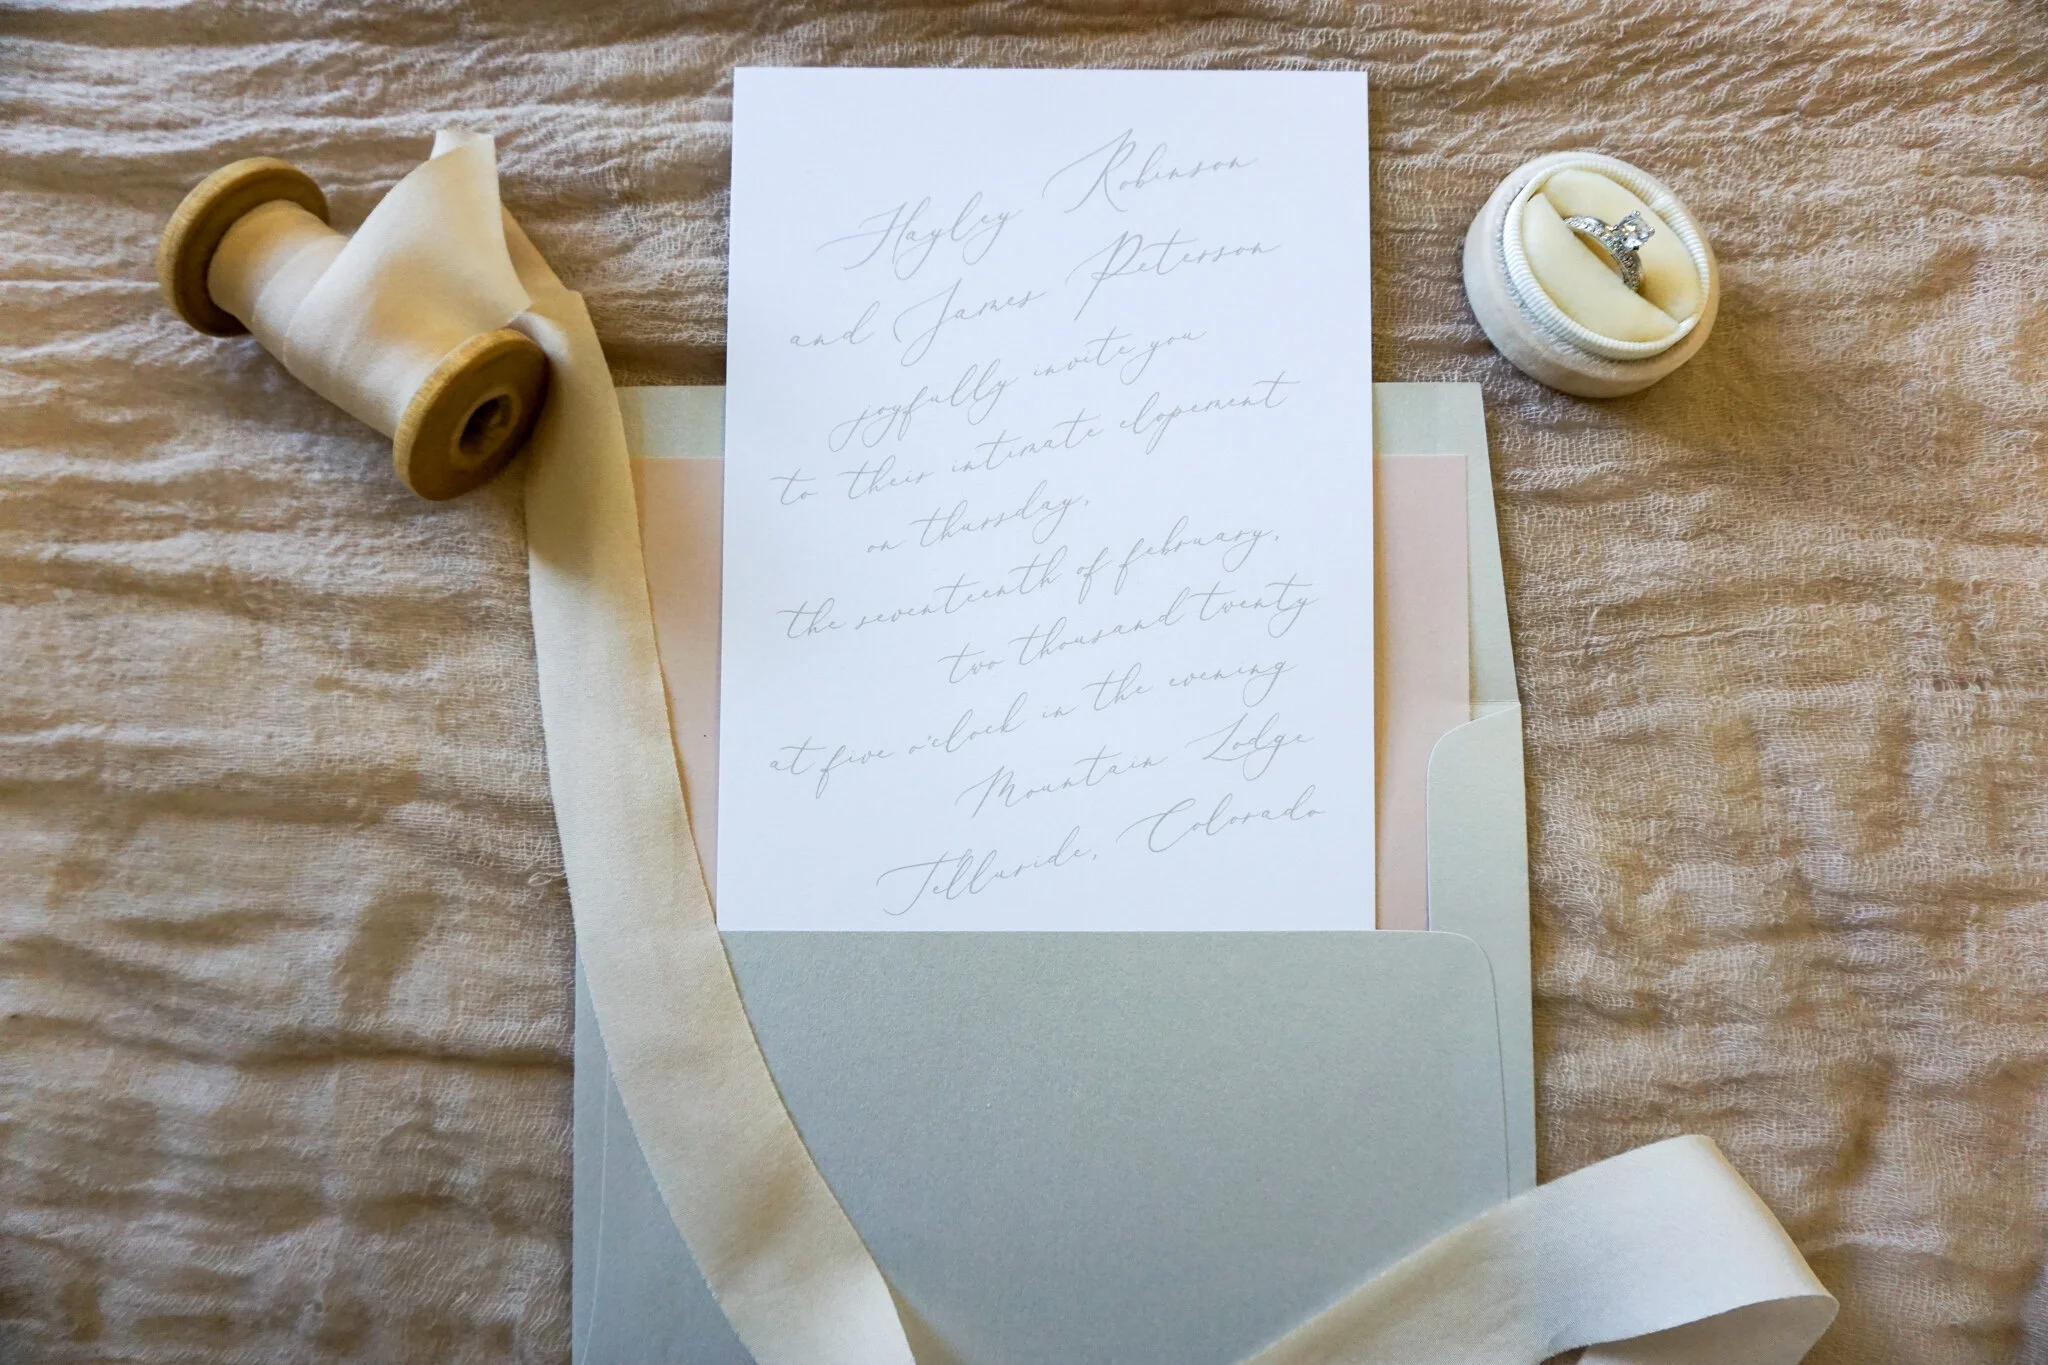 Hayley Robinson
and James Peterson
joyfully invite you
to their intimate elopement
on thursday,
the seventeenth of february,
two thousand twenty
at five o'clock in the evening
Mountain Lodge
Telluride, Colorado